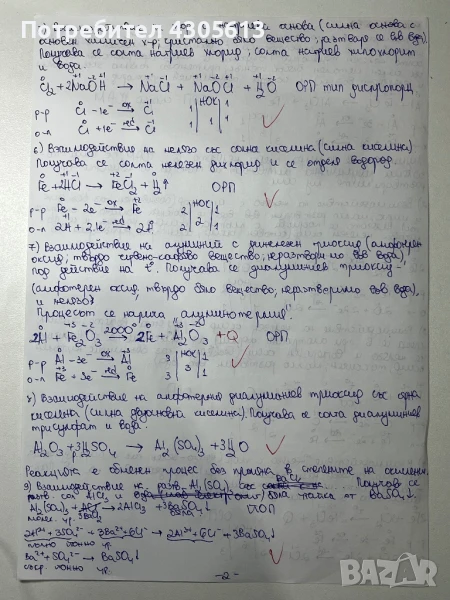 Потребител 4305613
основен химичен х-р; кристално бяло вещество; разтваря се във вода).
Получава се солта натриев хлорид; солта натриев хипохлорит
и вода.
Cl₂ + 2NaOH → NaCl + NaOCl + H₂O ОРП тип диспропорц.
р-р Cl - 1e⁻ ox→ Cl 1 | НОК | 1
о-л Cl + 1e⁻ red→ Cl 1 | 1 | 1
6) Взаимодействие на желязо със солна киселина (силна киселина)
Получава се солта железен дихлорид и се отделя водород.
Fe + 2HCl → FeCl₂ + H₂↑ ОРП
р-р Fe - 2e⁻ ox→ Fe 2 | НОК | 1
о-л 2H + 2.1e⁻ red→ 2H 2 | 2 | 1
7) Взаимодействие на алуминий с дижелезен триоксид (амфотерен
оксид; твърдо червено-кафяво вещество; неразтворимо във вода)
под действие на t°. Получава се диалуминиев триоксид
(амфотерен оксид, твърдо бяло вещество; неразтворимо във вода),
и желязо.
Процесът се нарича "алуминотермия".
2Al + Fe₂O₃ 2000°→ 2Fe + Al₂O₃ + Q ОРП
р-р Al - 3e⁻ ox→ Al 3 | НОК | 1
о-л Fe + 3e⁻ red→ Fe 3 | 3 | 1
8) Взаимодействие на амфотерния диалуминиев триоксид със сярна
киселина (силна двуосновна киселина). Получава се солта диалуминиев
трисулфат и вода.
Al₂O₃ + 3H₂SO₄ → Al₂(SO₄)₃ + 3H₂O
Реакцията е обменен процес без промяна в степените на окисление.
9) Взаимодействие на разтв. Al₂(SO₄)₃ със BaCl₂. Получава се
разтв. сол AlCl₃ и бяла утайка от BaSO₄↓.
Al₂(SO₄)₃ + 3BaCl₂ → 2AlCl₃ + 3BaSO₄↓ ЙОП
молек. ур. бяла
2Al³⁺ + 3SO₄²⁻ + 3Ba²⁺ + 6Cl⁻ → 2Al³⁺ + 6Cl⁻ + 3BaSO₄↓
пълно йонно ур.
Ba²⁺ + SO₄²⁻ → BaSO₄↓
съкр. йонно ур.
-2-
BAZAR